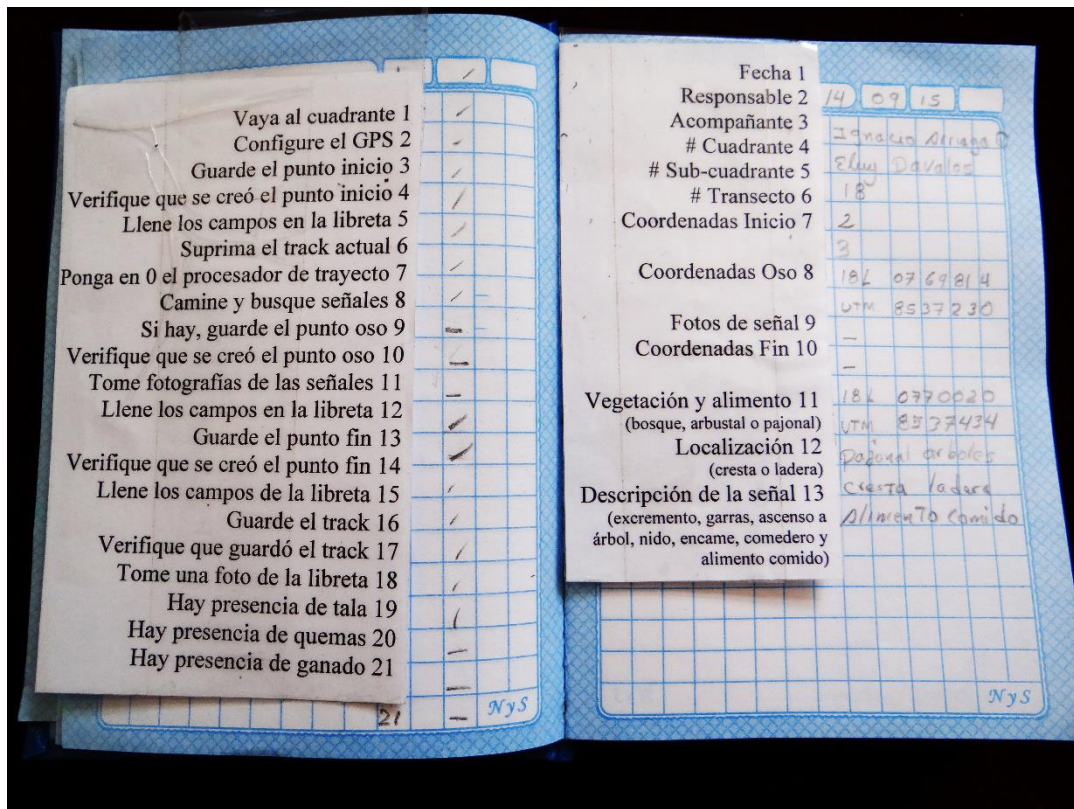 Vaya al cuadrante 1
Configure el GPS 2
Guarde el punto inicio 3
Verifique que se creó el punto inicio 4
Llene los campos en la libreta 5
Suprima el track actual 6
Ponga en 0 el procesador de trayecto 7
Camine y busque señales 8
Si hay, guarde el punto oso 9
Verifique que se creó el punto oso 10
Tome fotografías de las señales 11
Llene los campos en la libreta 12
Guarde el punto fin 13
Verifique que se creó el punto fin 14
Llene los campos de la libreta 15
Guarde el track 16
Verifique que guardó el track 17
Tome una foto de la libreta 18
Hay presencia de tala 19
Hay presencia de quemas 20
Hay presencia de ganado 21
21
NyS
Fecha 1
Responsable 2
Acompañante 3
# Cuadrante 4
# Sub-cuadrante 5
# Transecto 6
Coordenadas Inicio 7
Coordenadas Oso 8
Fotos de señal 9
Coordenadas Fin 10
Vegetación y alimento 11
(bosque, arbustal o pajonal)
Localización 12
(cresta o ladera)
Descripción de la señal 13
(excremento, garras, ascenso a
árbol, nido, encame, comedero y
alimento comido)
14 09 15
Ignacio
Davalos
18
2
3
18L 0769814
UTM 8537230
—
—
18L 0770020
UTM 8537434
Pajonal arboles
Cresta ladera
Alimento Comido
NyS